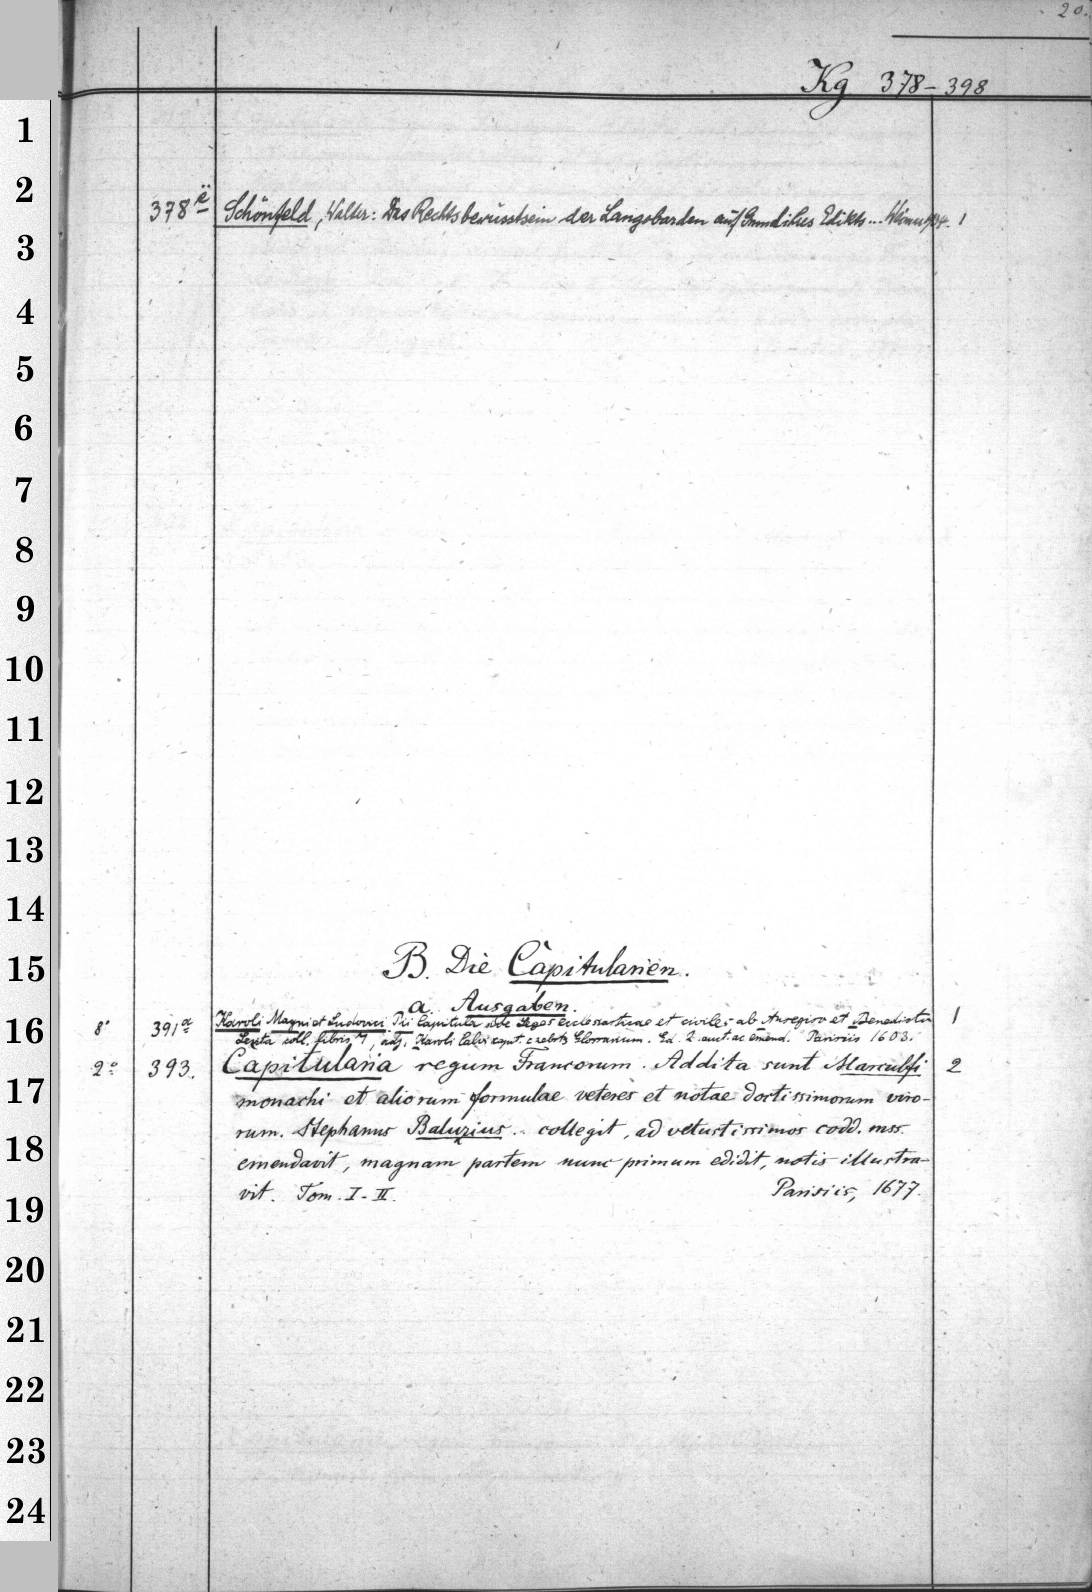 20.
Kg 378-398
1
2
378 ë Schönfeld, Walter: Das Rechtsbewusstsein der Langobarden auf Grund ihres Edikts... Weimar 1934. 1
3
4
5
6
7
8
9
10
11
12
13
14
15
B. Die Capitularien.
a. Ausgaben.
16
8° 391a Karoli Magni et Ludovici Pii Capitula sive Leges ecclesiasticae et civiles ab Ansegiso et Benedicto 1
Levita coll. libris 7, adj. Karoli Calvi Ed. 2 auct. ac emend. Parisiis 1603.
2° 393. Capitularia regum Francorum. Addita sunt Marculfi 2
17
monachi et aliorum formulae veteres et notae doctissimorum viro-
rum. Stephanus Baluzius collegit, ad vetustissimos codd. mss.
18
emendavit, magnam partem nunc primum edidit, notis illustra-
vit. Tom. I-II. Parisiis, 1677.
19
20
21
22
23
24